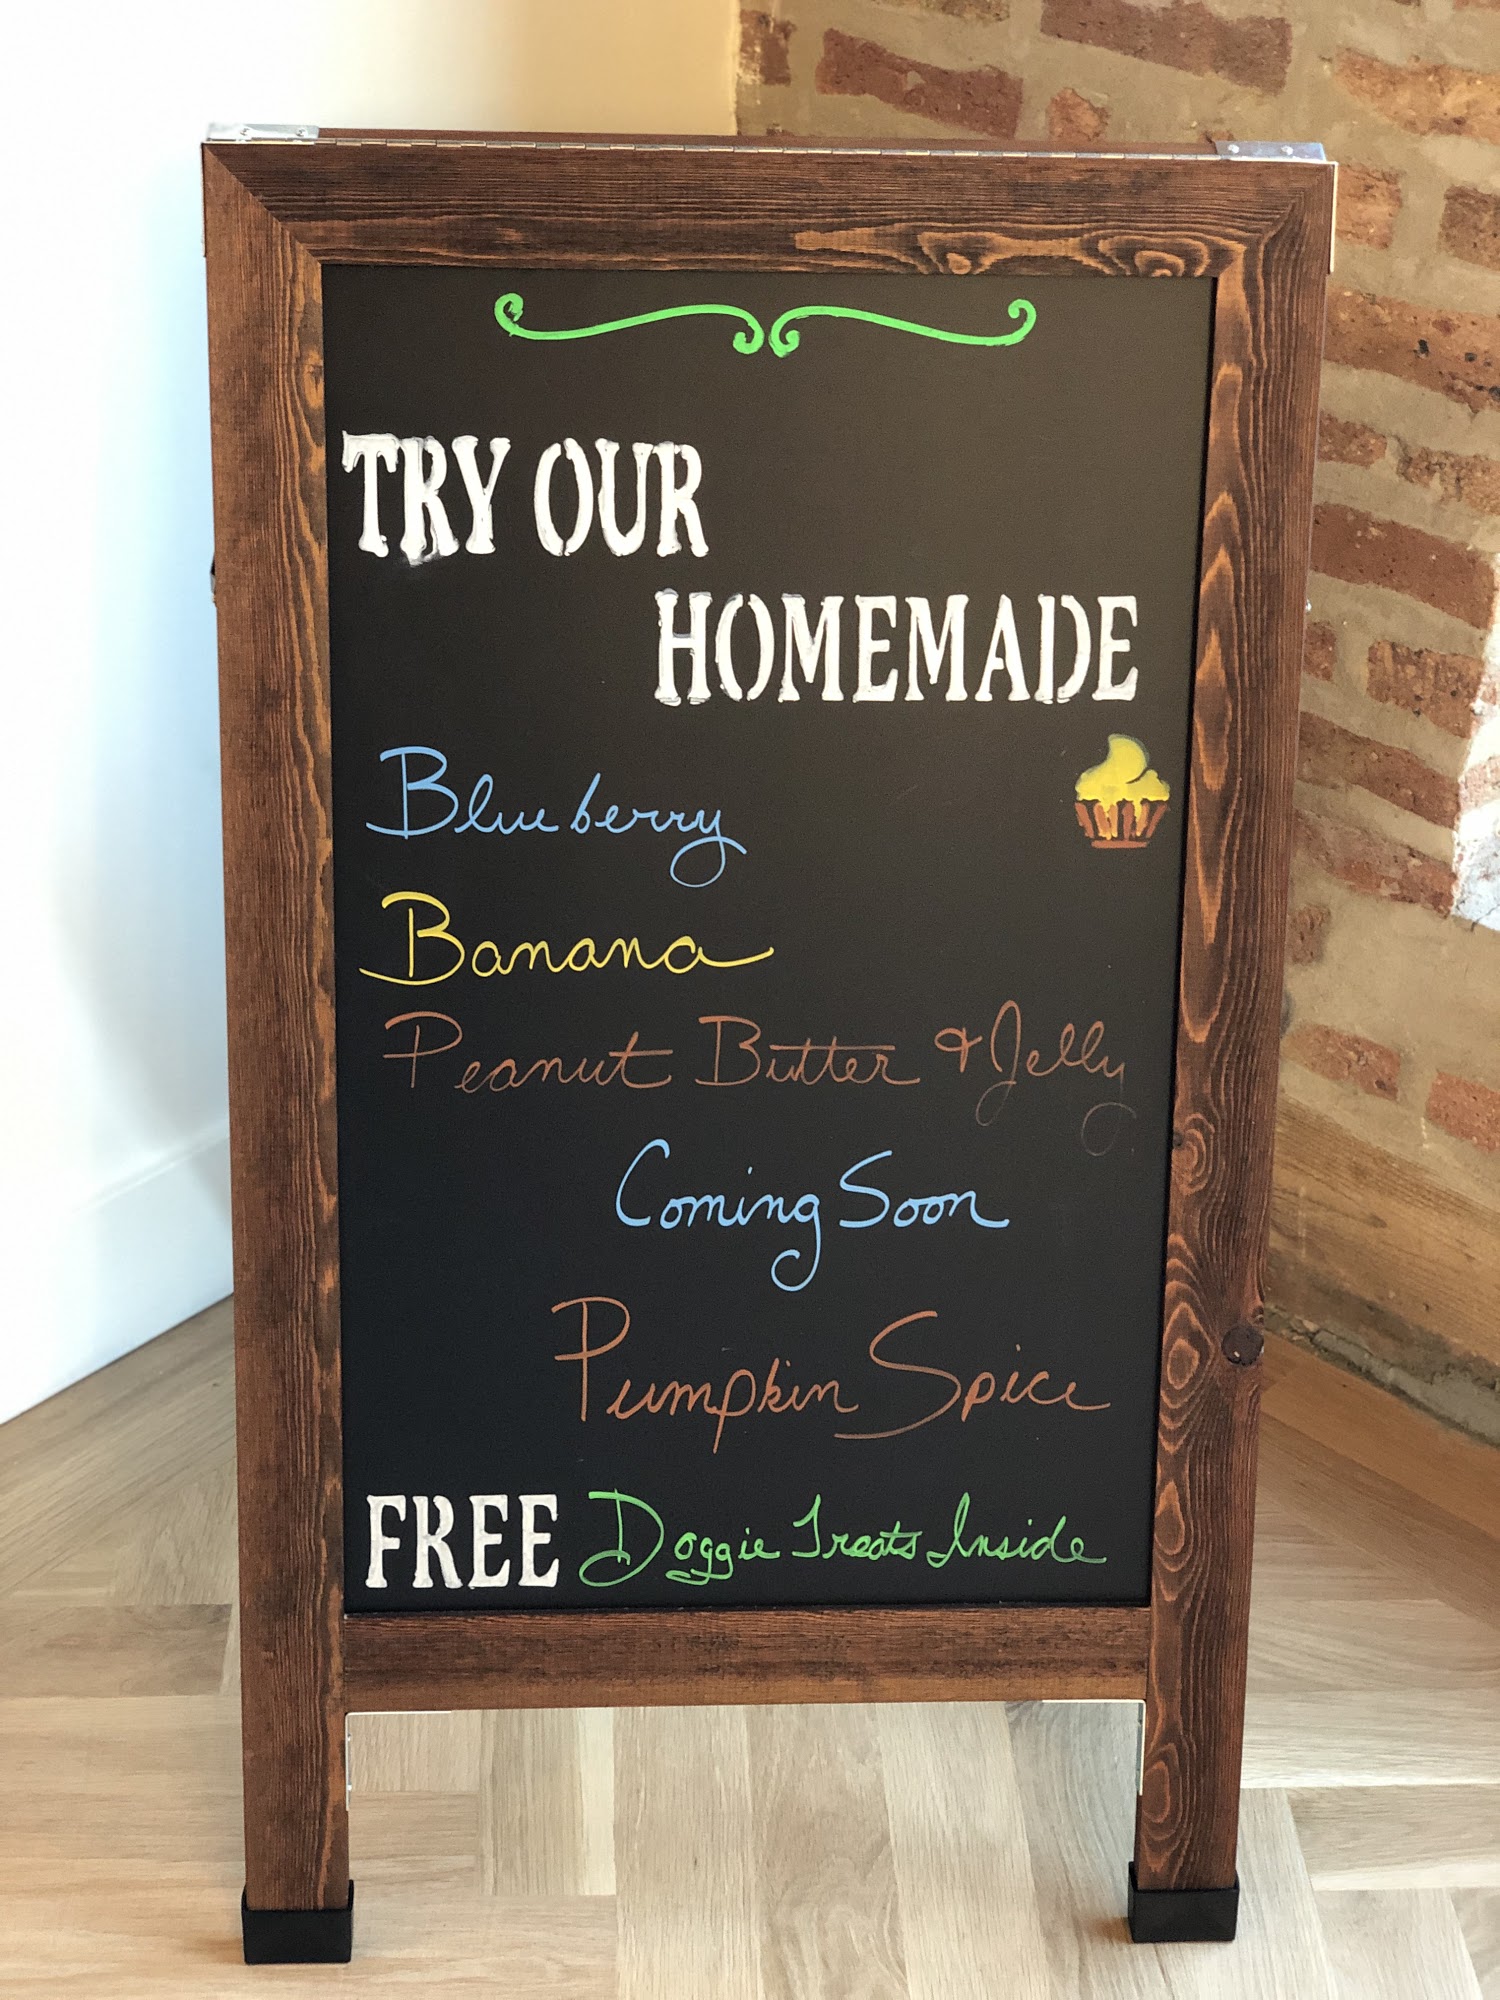 TRY OUR
HOMEMADE
Blueberry
Banana
Peanut Butter & Jelly
Coming Soon
Pumpkin Spice
FREE Doggie Treats Inside